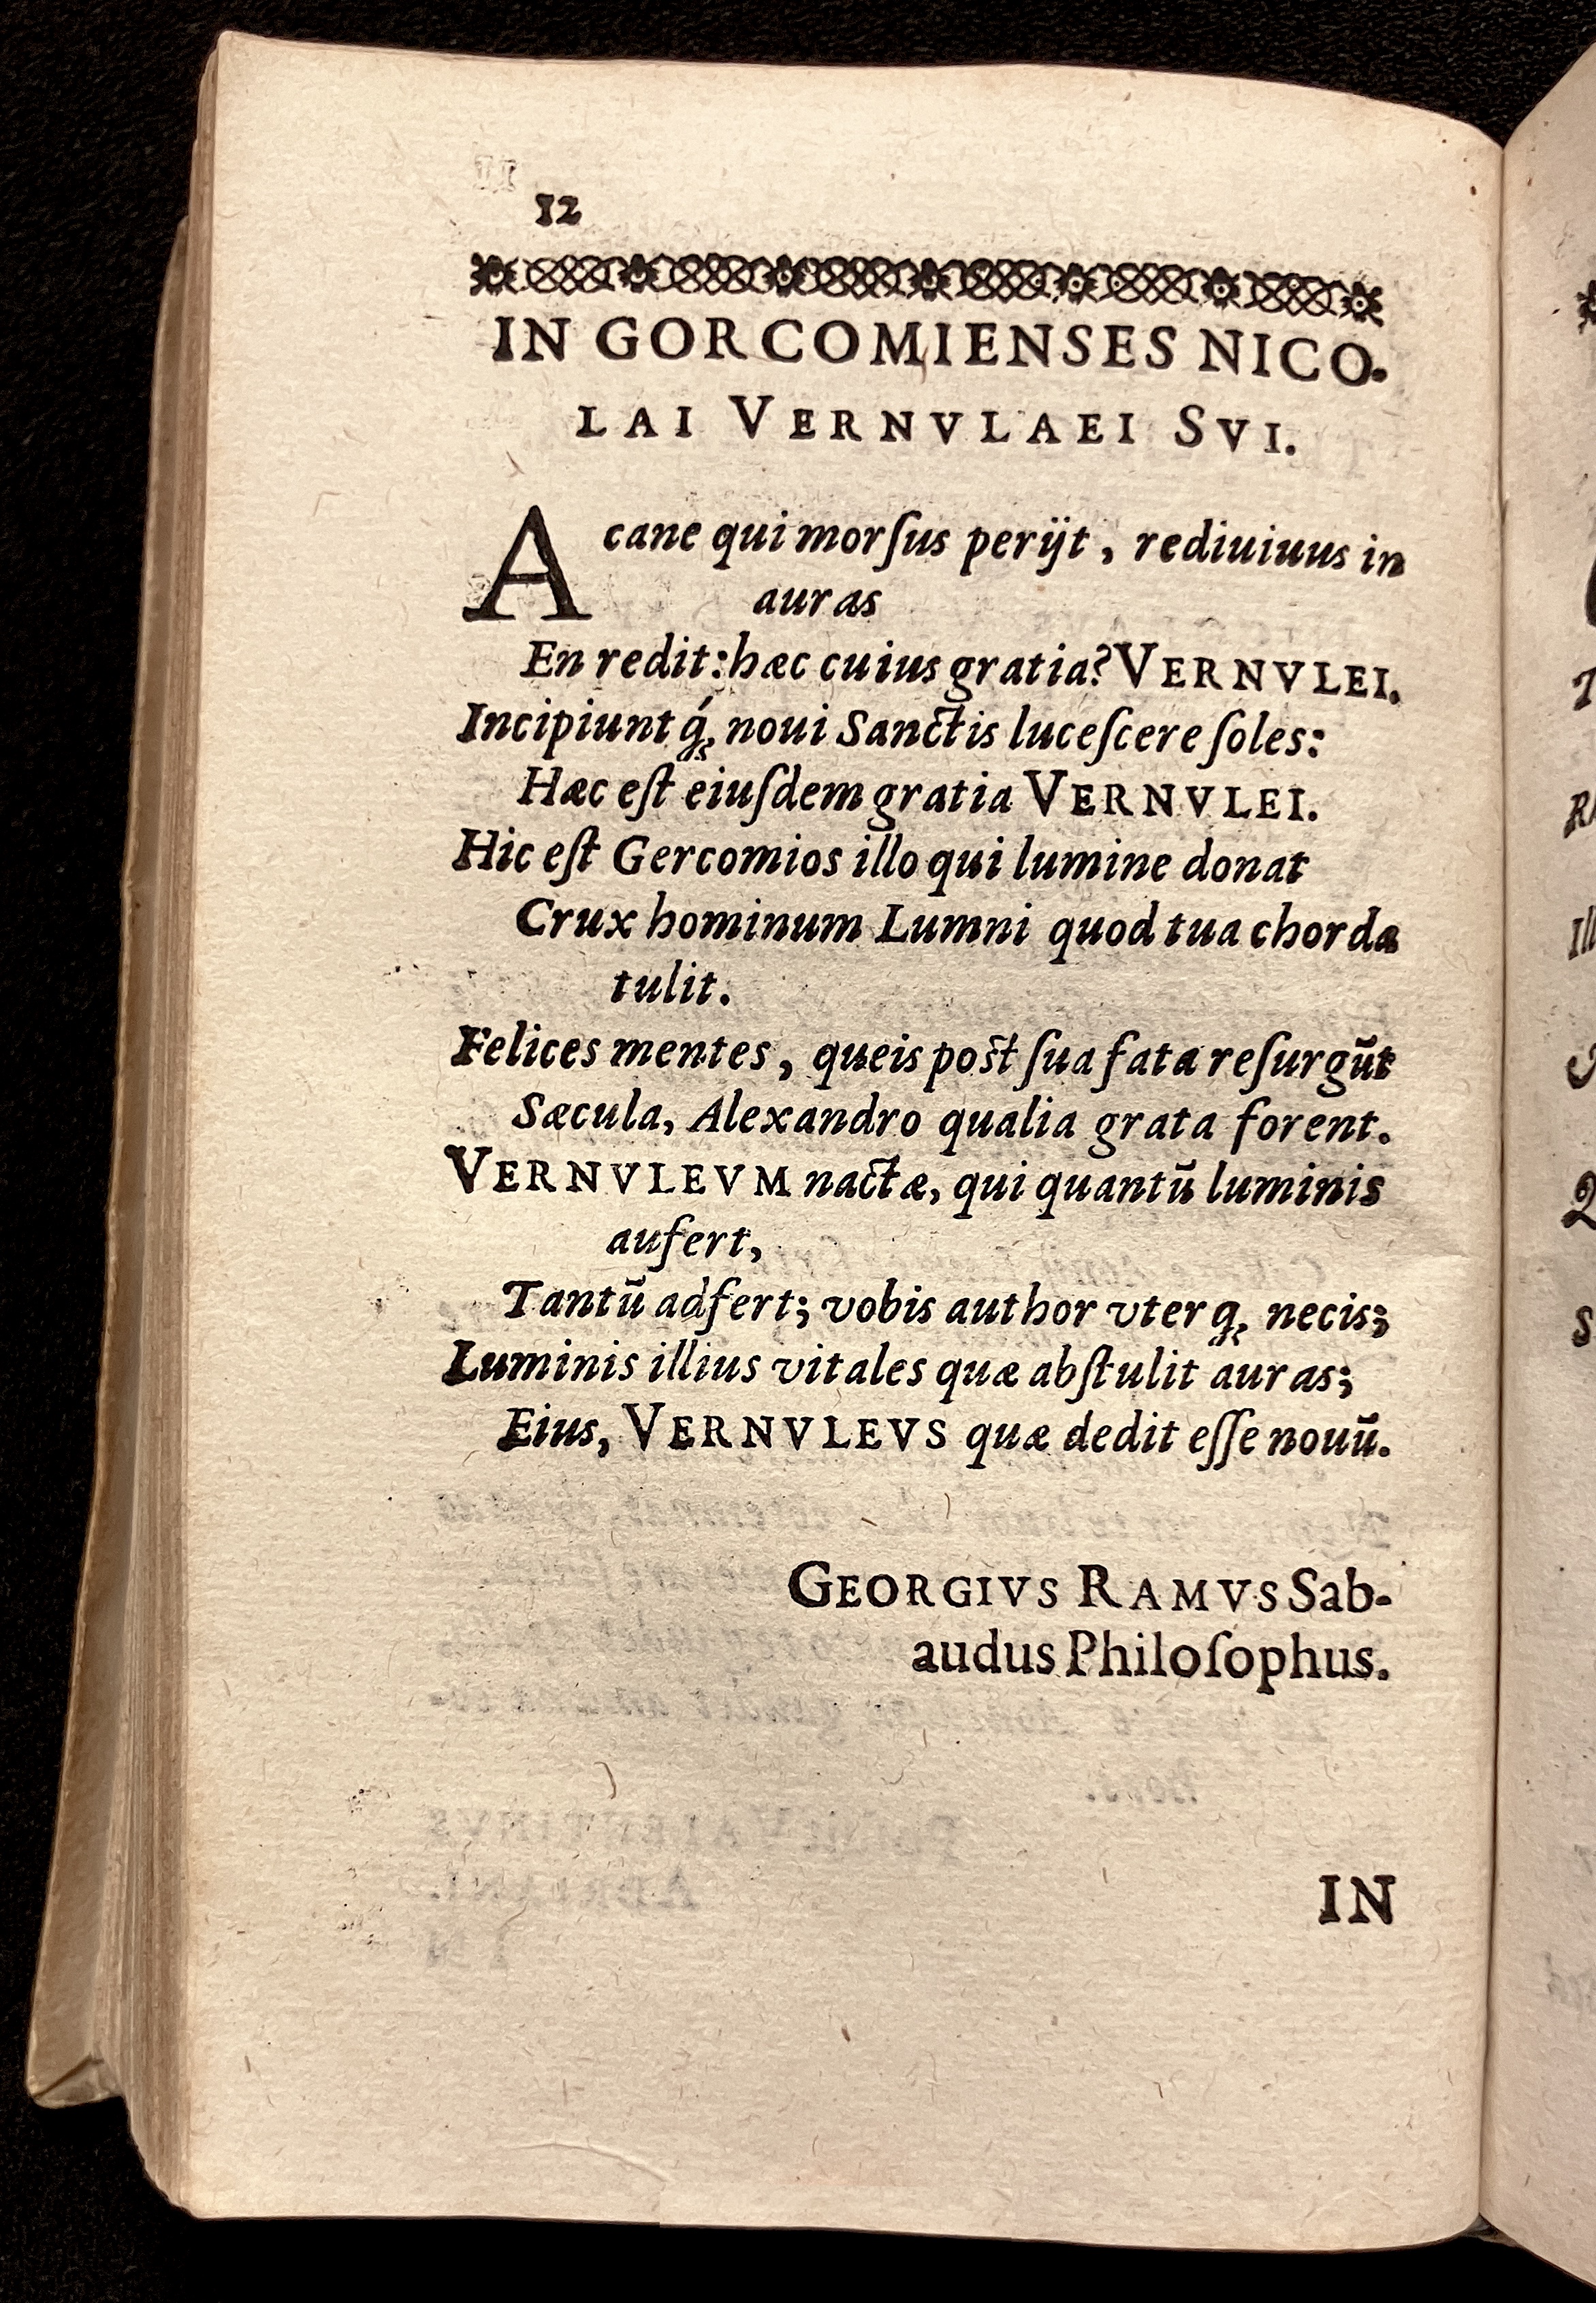 12
IN GORCOMIENSES NICO-
LAI VERNVLAEI SVI.
A cane qui morſus perijt, rediuiuus in
auras
En redit: hæc cuius gratia? VERNVLEI.
Incipiuntq́; noui Sanctis luceſcere ſoles:
Hæc eſt eiuſdem gratia VERNVLEI.
Hic eſt Gercomios illo qui lumine donat
Crux hominum Lumni quod tua chorda
tulit.
Felices mentes, queis post ſua fata reſurgūt
Sæcula, Alexandro qualia grata forent.
VERNVLEVM nactæ, qui quantū luminis
aufert,
Tantū adfert; vobis author vterq; necis;
Luminis illius vitales quæ abſtulit auras;
Eius, VERNVLEVS quæ dedit eſſe nouū.
GEORGIVS RAMVS Sab-
audus Philoſophus.
IN